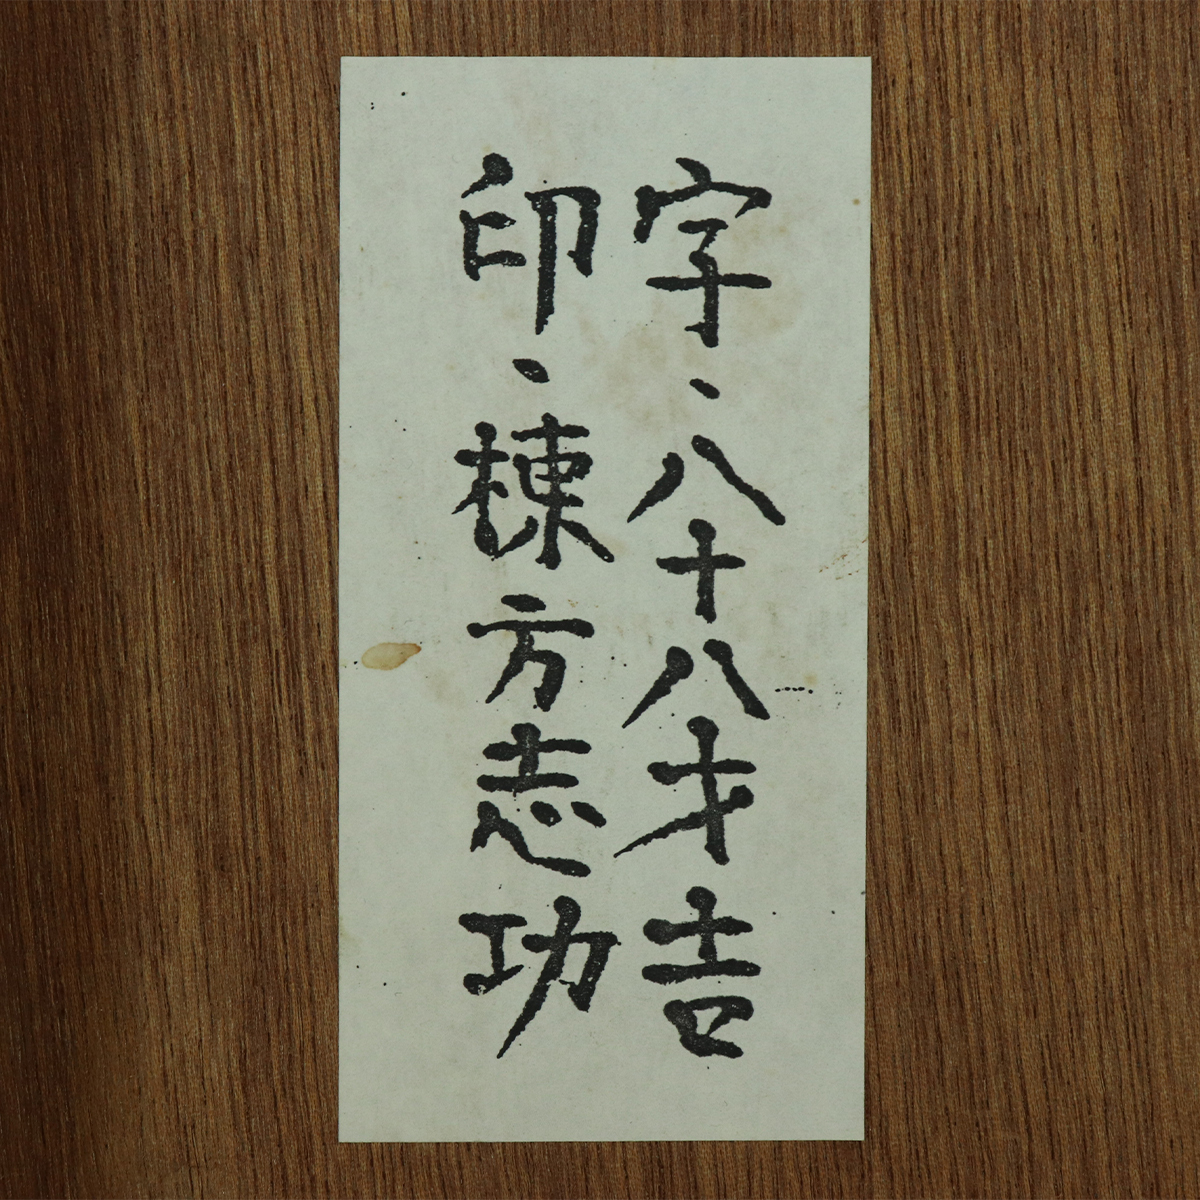 字、八十八才吉
印、棟方志功